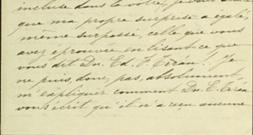 incluse dans la votre, je vous
que ma propre surprise a égalé,
même surpassé, celle que vous
avez éprouvée en lisant ce que
vous dit Dn. Ed. F. Je
ne puis, donc, pas, absolument,
m'expliquer comment Dn. E.
vous écrit qu'il n'a reçu aucune